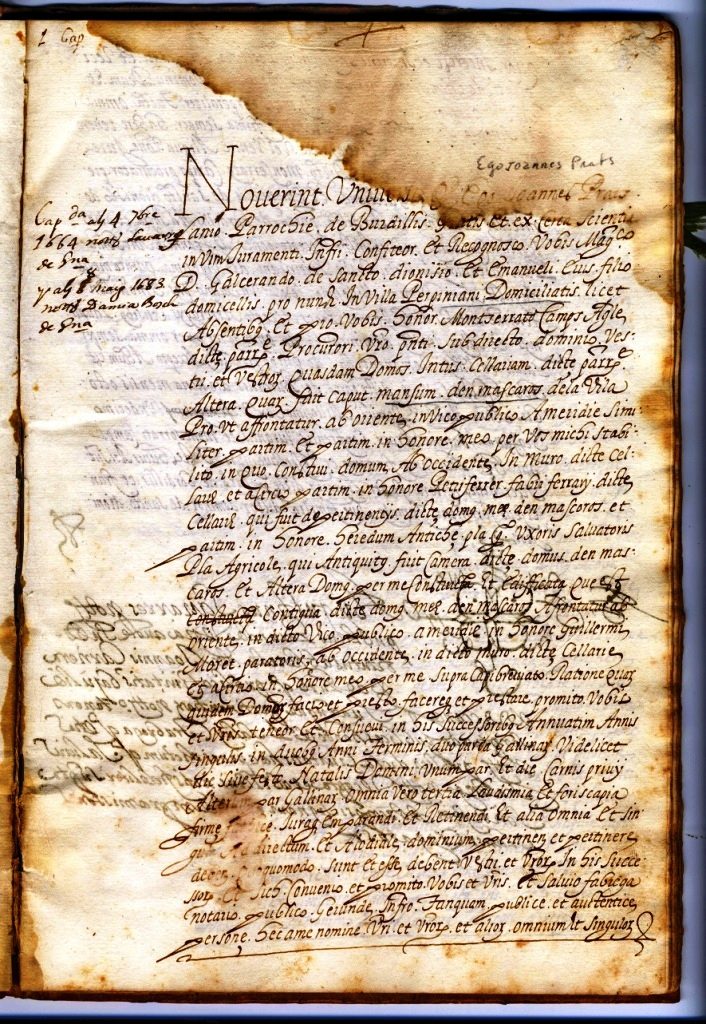 1 Cap
Ego Joannes Prats
Noverint Universi
Cap da als 4 7bre
1664 notr
de Gna
y als 8 mayo 1683
notr Damia Bosch
de Gna
Parrochie de Burdillis gratis et ex certa scientia
in vim Juramenti Infri Confiteor et Recognosco Vobis Magco
D. Galcerando de Sancto dionisio et Emanueli eius filio
domicellis pro nunc In Villa Perpiniani Domiciliatis licet
Absentibq et pro Vobis honor Montserrato Camps Agle
dicte parre Procurori Vro pnti sub directo dominio Ves-
tri et Vestror Quasdam Domos Intus Cellariam dicte parre
Altera Quar fuit caput mansum den mascaros dela Vila
Pro Vt affrontatur ab oriente in Vico publico A meridie Simi-
liter partim et partim in honore meo per Vos michi stabi-
lito in quo Construi domum Ab occidente In Muro dicte Cel-
larie et a circio partim in honore Petri ferrer fabri ferrary dicte
Cellarie qui fuit de pertinentys dicte domq mee den mascaros et
partim in honore heredum Antiche pla Uxoris Salvatoris
Pla Agricole qui Antiquitq fuit Camera dicte domus den mas-
caros et Altera Domq per me Constructa et Edifficata Que
Contigua dicte domq mee den mascaros Affrontatur ab
oriente in dicto Vico publico a meridie in honore Guillermi
Moret paratoris ab occidente in dicto muro dicte Cellarie
et a circio in honore meo per me Supra Ratione Quar
quidem Domor facio et presto facereq et prestare promito Vobis
et Vris teneor et Consuevi in his Successoribq Annuatim Annis
singulis in duobq Anni terminis duo paria Gallinar Videlicet
hic festo Natalis Domini Unum par et die Carnis privy
Alterum par Gallinar Omnia Vero tertia Laudismia et foriscapia
firme Juraq Emparandi et Rettinendi et alia Omnia et sin-
gula directum et Alodiale dominium pertinen et pertinere
quomodo sunt et esse debent Vestri et Vror In his Succe-
ssor et Sich Convenio et promito Vobis et Vris et Salvio fabrega
notario publico Gerunde Infro Tanquam publice et autentice
persone hec a me nomine Vri et Vror et alior omnium et Singulor